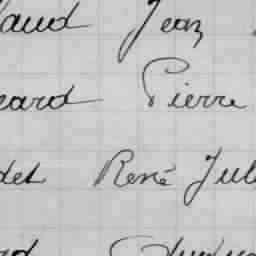 aud Jean
eard Pierre
det René Jul
rd